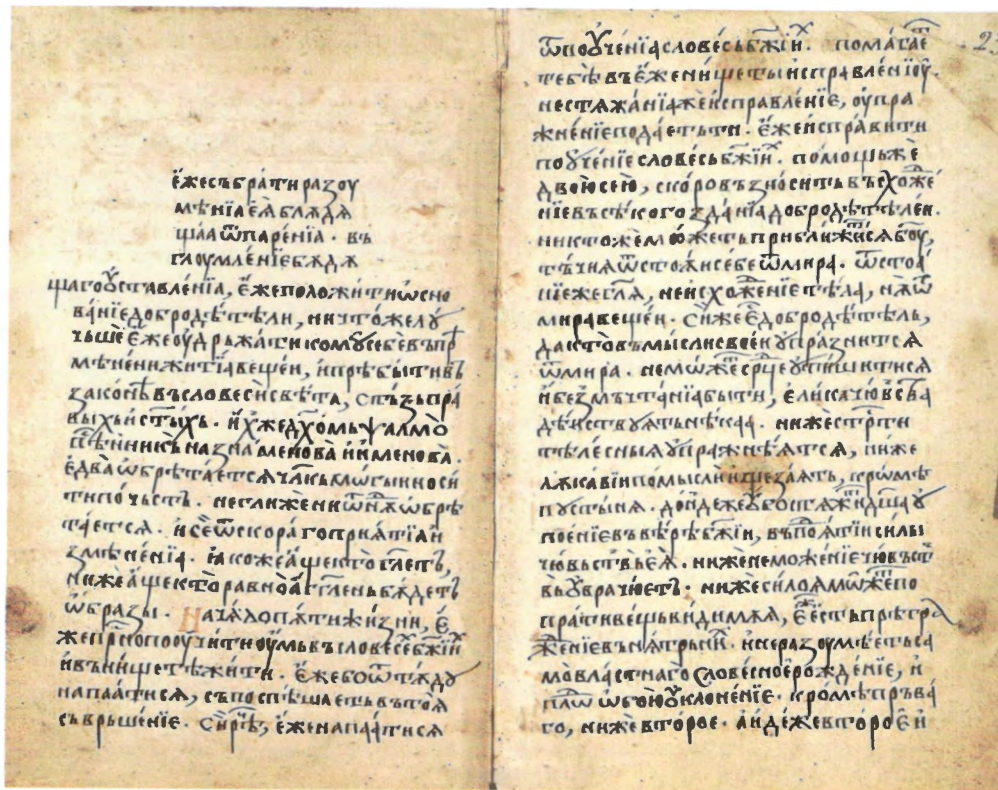 ёжесъбра́тиразоу
мѣ́нїаеѧ̀блѫдѧ
щаа ѿпаре́нїа · въ
глоумле́нїебѫдѫ
щагоѹста́вленїа, є́жеположи́тиѡсно
ва́нїедоброде́тели, ничто́желꙋ
чьшеє́жеоудръжа́тикомꙋсебе́въпр
мѣне́ниижитїа́веще́и, ипрѣбы́тивъ
зако́нѣвъсловесисвѣ́та, стьзьпра
выхьисты́хь · и҆хжед҃хомьѱалмо
пѣв́никьназна́меновàи҆именова̀ ·
є҆два̀ѡбрѣта́етсѧчл҃кьмѡгы́иноси
типо́чьсть · неглиженїиѿнѫ́ѡбрѣ
та́ется · исеѿскора́гоприѧтїаи
змѣне́нїа · ꙗкожеа́щектогле́ть,
ниже́а́щекторавноа҆гле́нъбѫдеть
ѡбразы · Нача́лопѫтижи́зни, є́
жепр҃нопооучи́тиоумьвъсловесе́б҃жїи
ивъни́щетѣжи́ти · є́жебоѿтꙋ́дꙋ
напаа́тисѧ, съпоспѣша́етьвътоѧ̀
съврьше́нїе · си́рѣ, є́женапаа́тисѧ
ѿпоуче́нїасловесьб҃жїих · помага́е
тебѣвъє́женищеты́исправле́нїоу ·
нестѧжа́нїажеисправле́нїе, оупра
жне́нїеподае́тьти · є́жеиспра́вити
пооуче́нїесловесьб҃жїи · помощьже
двоюсе́ю, ско́ровъзно́ситьвъсхоже́
нїевъсе́когозда́нїадобродѣ́телеи ·
никто́жемо́жетьприближи́тисѧб҃оу,
тъчїѧѿсто́ѧисебеѿми́ра · ѿстоа́
нїежегл҃ѧ, неисхожде́нїетѣла, нѫѿ
мираве́щеи · си́жее҆добродѣ́тель,
дактовъмыслисвоеиѹпра́знитсѧ
ѿмира · неможесрцеѹтиши́тисѧ
ибезмьчта́нїабы́ти, є҆ли́качю́вства
дѣиствꙋ́ютьнѣ́каа · нижестр҃ти
тѣлесны́ѧѹпражнѣ́ютсѧ, ни́же
лѫка́вїипомысли́ищеза́ють, кро́мѣ
пꙋсты́нѧ · до́ндежеѹбостѧжи́дш҃аѹ
пое́нїевъвѣрѣб҃жїи, въпрїѧ́тїисилы
чювьствьеѧ̀ · ниженеможе́нїечювьст
вьоуврачю́еть · нижеси́лоюмо́жепо
пра́тиве́щьви́димаѧ, є҆же́естьпрѣгра
жде́нїевънѫ́трьнїи · инеразоумѣ́етьса
мовла́стнагослове́сноерожде́нїе, и
пло́ѡбоюѹклоне́нїе · кромѣпръва́
го, ни́жевторо́е · аидѣжевторо́еи